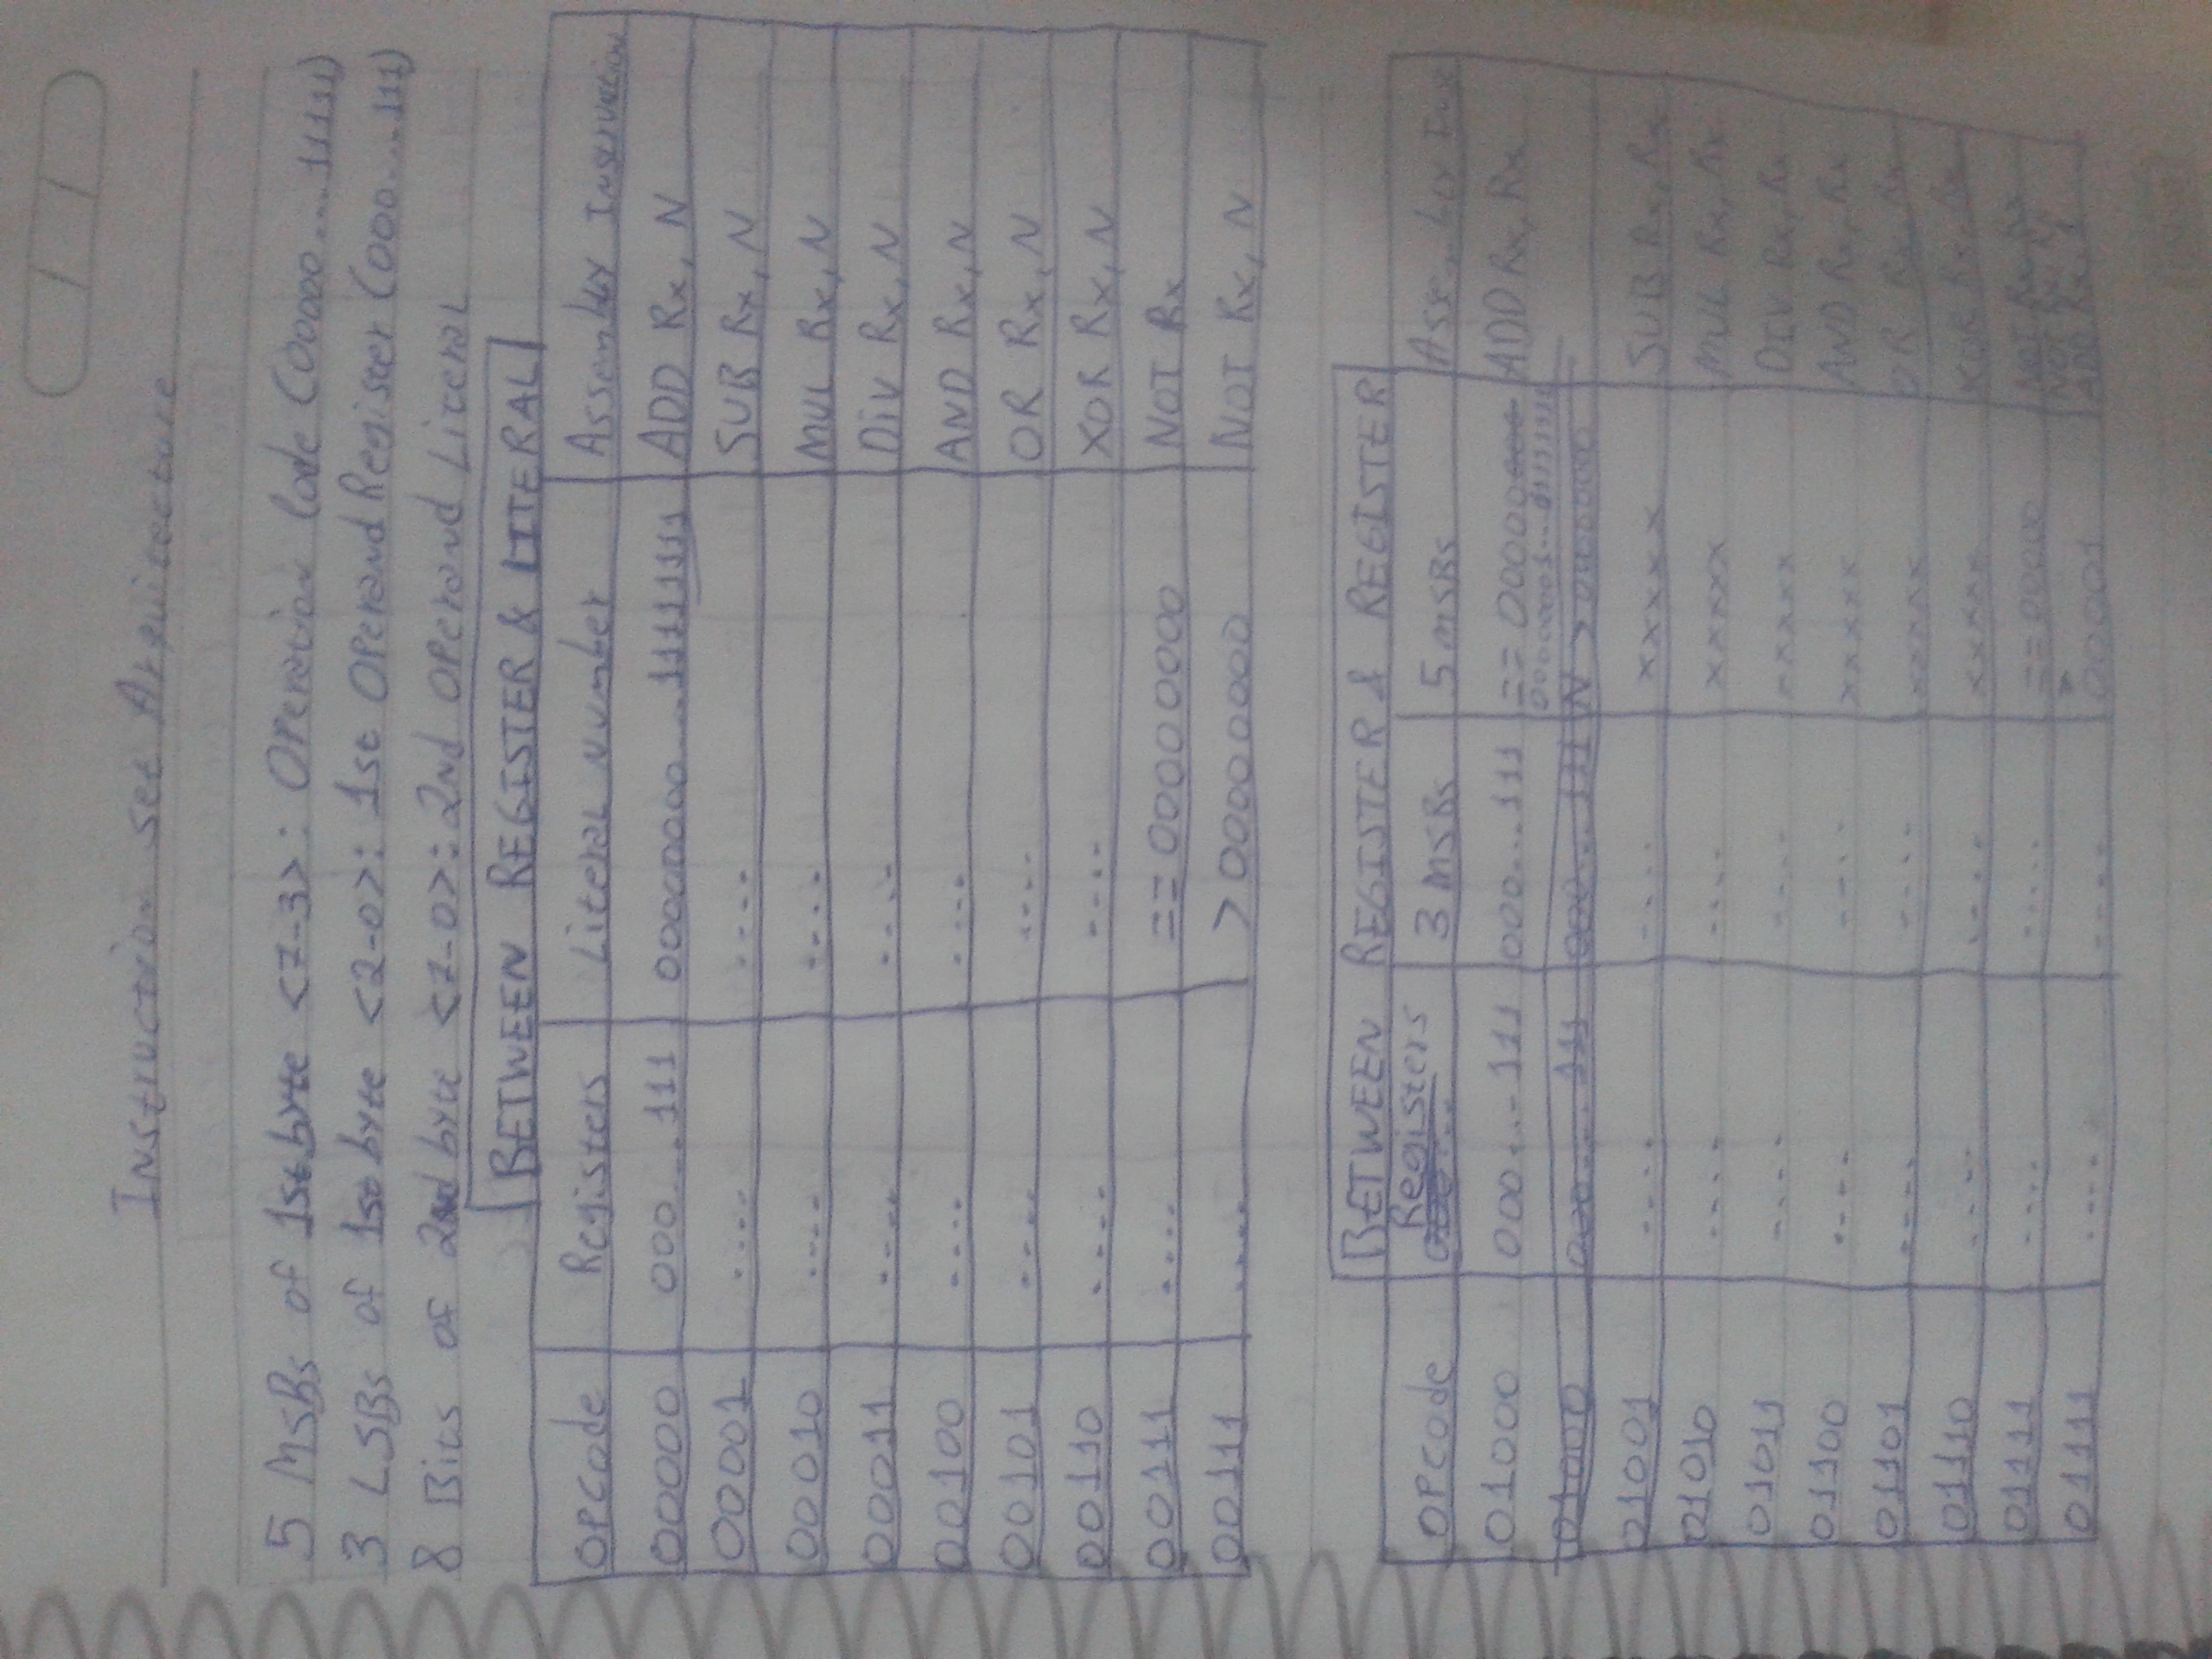 Instruction Set Arquitecture
5 MSBs of 1st byte <7-3>: Operation Code (00000...11111)
3 LSBs of 1st byte <2-0>: 1st Operand Register (000....111)
8 Bits of 2nd byte <7-0>: 2nd Operand Literal
BETWEEN REGISTER & LITERAL
OPCode Registers Literal Number Assembly Instruction
00000 000....111 00000000....11111111 ADD Rx, N
00001 .... .... SUB Rx, N
00010 .... .... MUL Rx, N
00011 .... .... DiV Rx, N
00100 .... .... AND Rx, N
00101 .... .... OR Rx, N
00110 .... .... XOR Rx, N
00111 .... ==00000000 NOT Rx
00111 .... >00000000 NOT Rx, N
BETWEEN REGISTER & REGISTER
OPCode Registers 3 MSBs 5 MSBs
01000 000....111 000...111 ==00000 ADD Rx, Rx
01000 000....111 000...111 N >00000000
01001 .... .... xxxxx SUB Rx, Rx
01010 .... .... xxxxx MUL Rx, Rx
01011 .... .... xxxxx DIV Rx, Rx
01100 .... .... xxxxx AND Rx, Rx
01101 .... .... xxxxx OR Rx, Rx
01110 .... .... xxxxx XOR Rx, Rx
01111 .... ..... ==00000 NOT Rx, Rx
01111 .... .... 00001 ADD Rx, 1